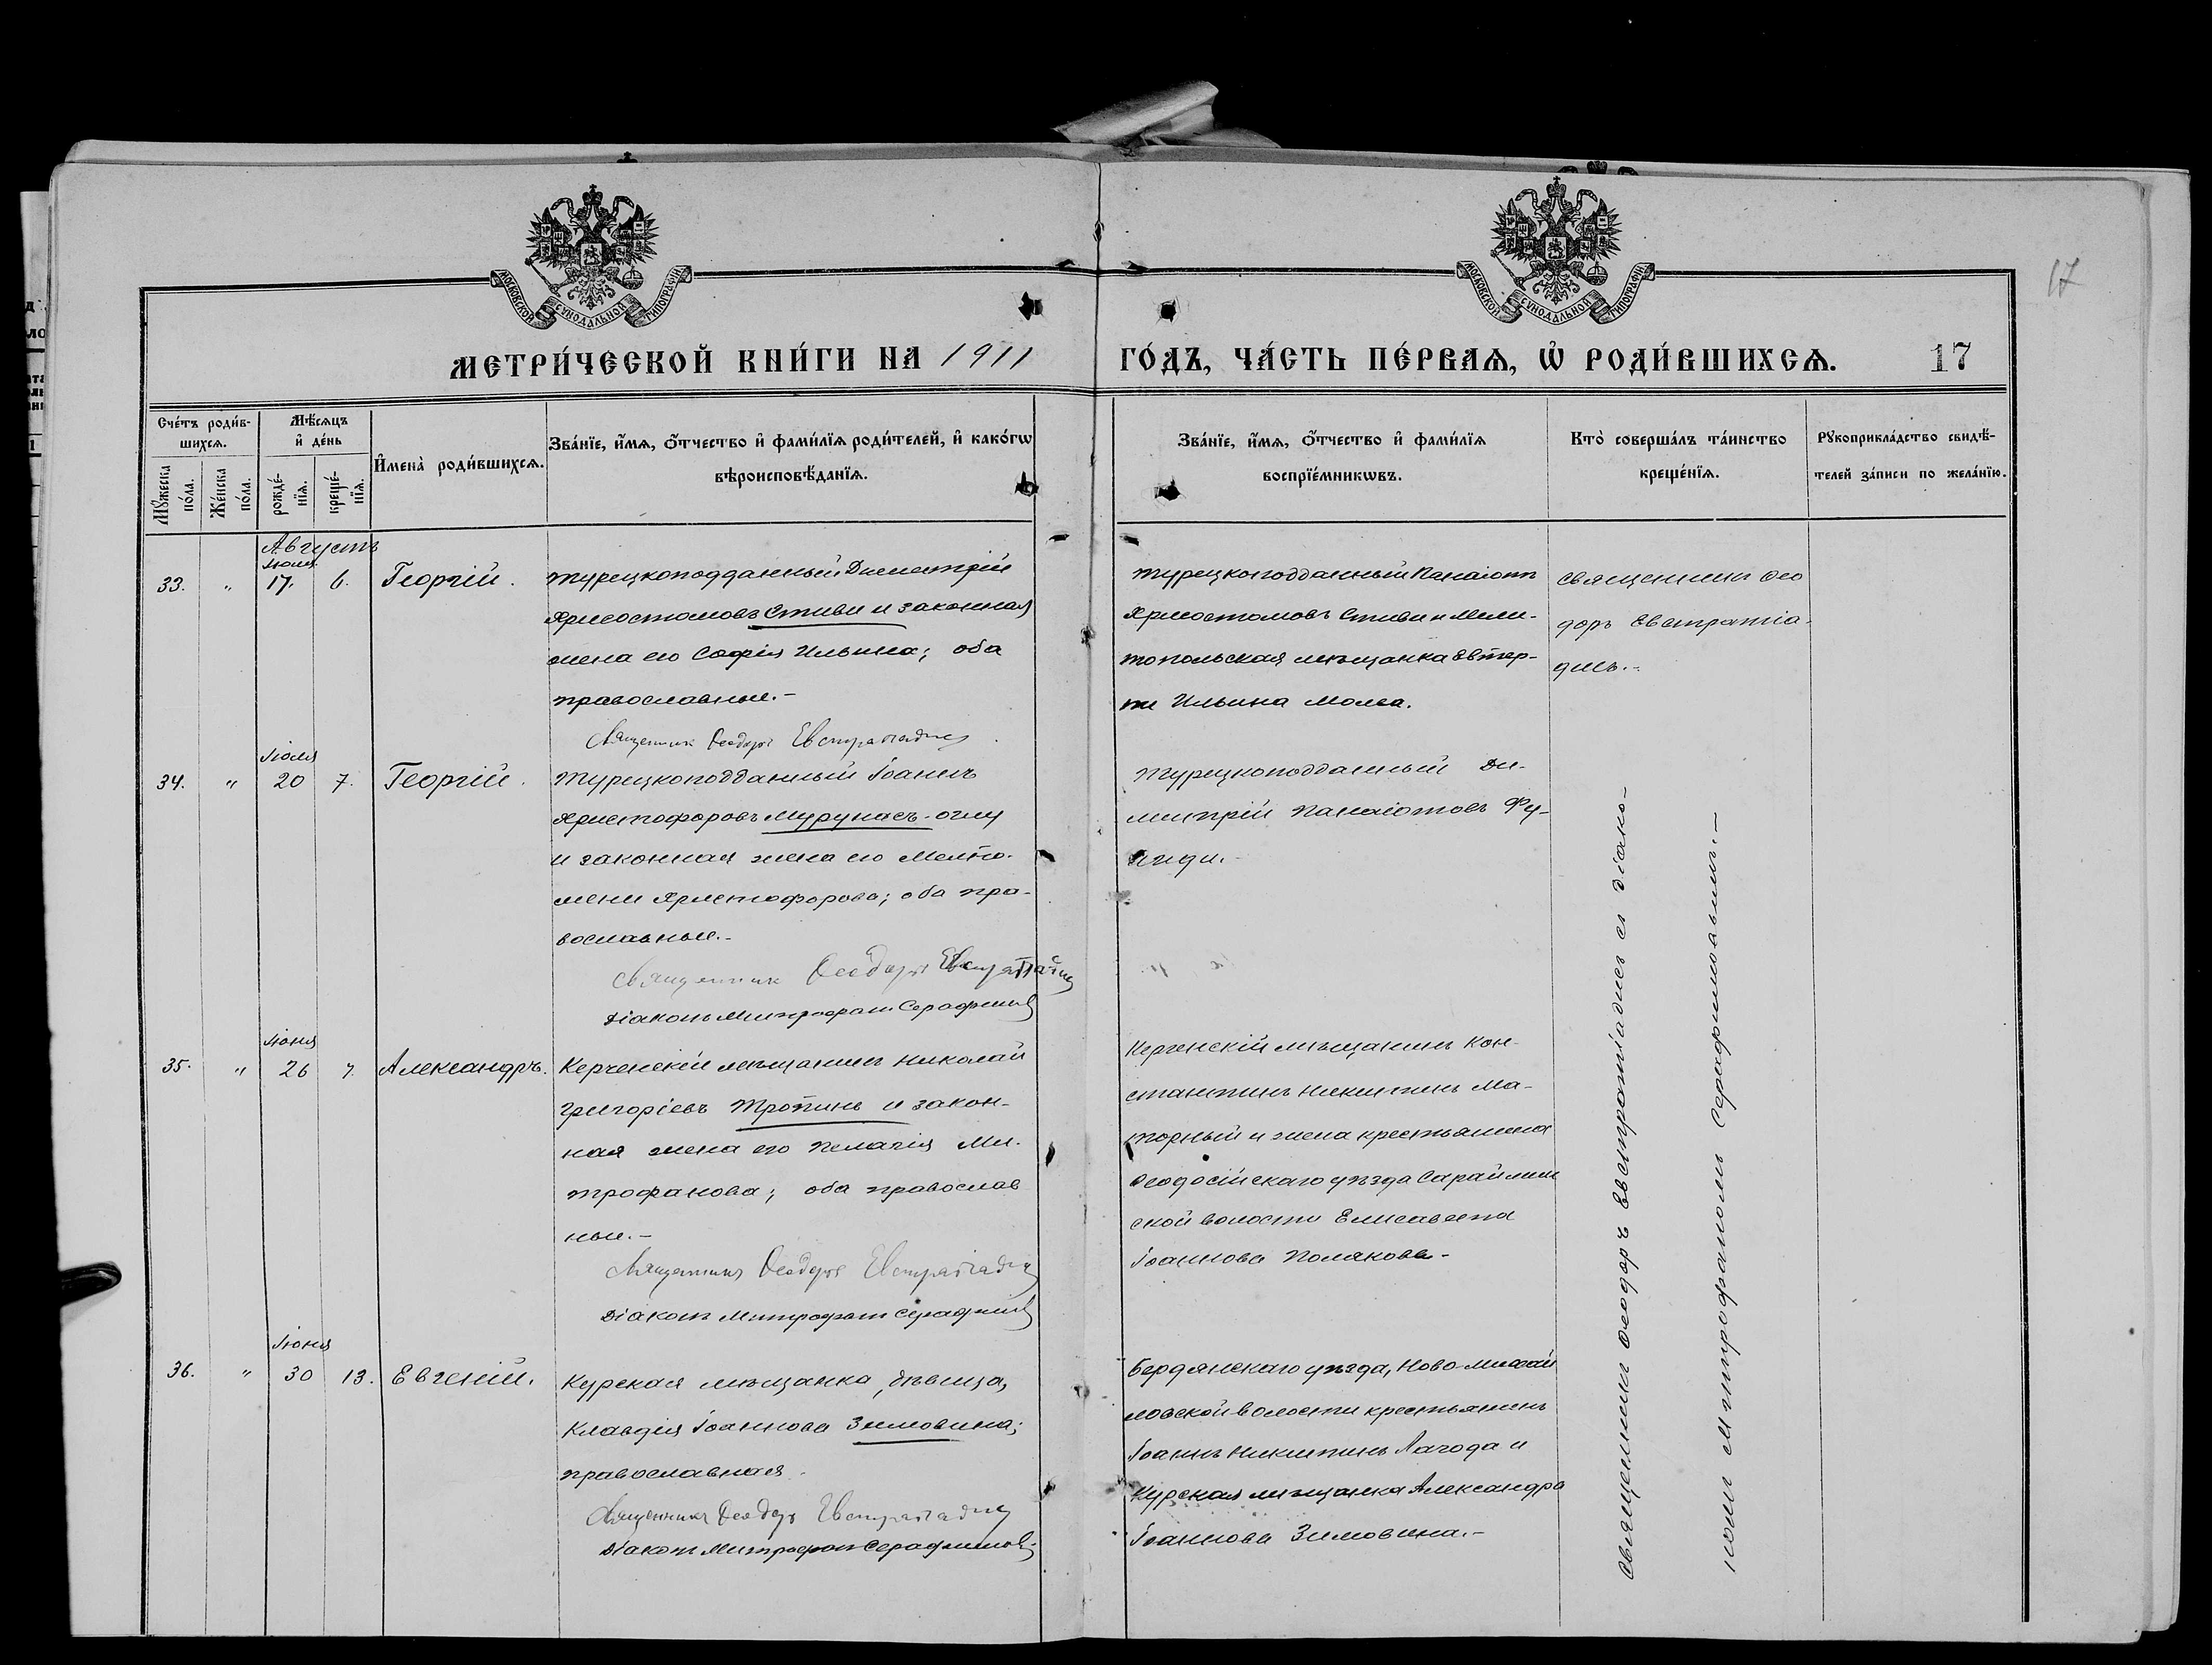 МОСКОВСКОЙ СѴНОДАЛЬНОЙ ТИПОГРАФІИ
МОСКОВСКОЙ СѴНОДАЛЬНОЙ ТИПОГРАФІИ
17
МЕТРИ́ЧЕСКОЙ КНИ́ГИ НА 1911
ГО́ДЪ, ЧА́СТЬ ПЕ́РВАѦ, Ѡ҆ РОДИ́ВШИХСѦ.
17
Сче́тъ роди́в-
шихсѧ.
Мꙋ́жеска
по́ла.
Же́нска
по́ла.
Мѣ́сѧцъ
и҆ де́нь
рожде́-
нїѧ.
креще́-
нїѧ.
И҆мена̀ роди́вшихсѧ.
Зва́нїе, и҆́мѧ, ѻ҆́тчество и҆ фами́лїѧ роди́телей, и҆ како́гѡ
вѣроисповѣ́данїѧ.
Зва́нїе, и҆́мѧ, ѻ҆́тчество и҆ фами́лїѧ
воспрїе́мникѡвъ.
Кто̀ соверша́лъ та́инство
креще́нїѧ.
Рꙋкоприкла́дство свидѣ́-
телей за́писи по жела́нїю.
Августъ
Іюля
33. " 17. 6. Георгій.
Турецкоподданный Димитрій
Хрисостомовъ Стиви и законная
жена его Софія Ильина; оба
православные.-
Священникъ Ѳеодоръ Евстратіадисъ
Турецкоподданный Панаіотъ
Хрисостомовъ Стиви и Мели-
топольская мѣщанка Евтер-
пи Ильина
Священникъ Ѳео
доръ Евстратіа-
дисъ.-
Іюля
34. " 20 7. Георгій.
Турецкоподданный Іоаннъ
Христофоровъ Мурунасъ-оглу
и законная жена его Мельпо-
мени Христофорова; оба пра-
вославные.-
Священникъ Ѳеодоръ Евстратіадисъ
Діаконъ Митрофанъ Серафимовъ
Турецкоподданный Ди-
митрій Панаіотовъ Фу-
Іюня
35. " 26 7. Александръ.
Керченскій мѣщанинъ Николай
Григоріевъ Тропинъ и закон-
ная жена его Пелагія Ми-
трофанова; оба православ
ные.-
Священникъ Ѳеодоръ Евстратіадисъ
Діаконъ Митрофанъ Серафимовъ
Керченскій мѣщанинъ Кон-
стантинъ Никитинъ Ма-
торный и жена крестьянина
Ѳеодосійскаго уѣзда Сараймин
ской волости Елисавета
Іоаннова Полякова-
Іюня
36. " 30 13. Евгеній.
Курская мѣщанка, дѣвица,
Клавдія Іоаннова Зимовина;
православная.
Священникъ Ѳеодоръ Евстратіадисъ
Діаконъ Митрофанъ Серафимовъ
Бердянскаго уѣзда, Ново-Михай
ловской волости крестьянинъ
Іоаннъ Никитинъ Лагода и
Курская мѣщанка Александра
Іоаннова Зимовина.-
Священникъ Ѳеодоръ Евстратіадисъ съ діако-
номъ Митрофаномъ Серафимовымъ.-